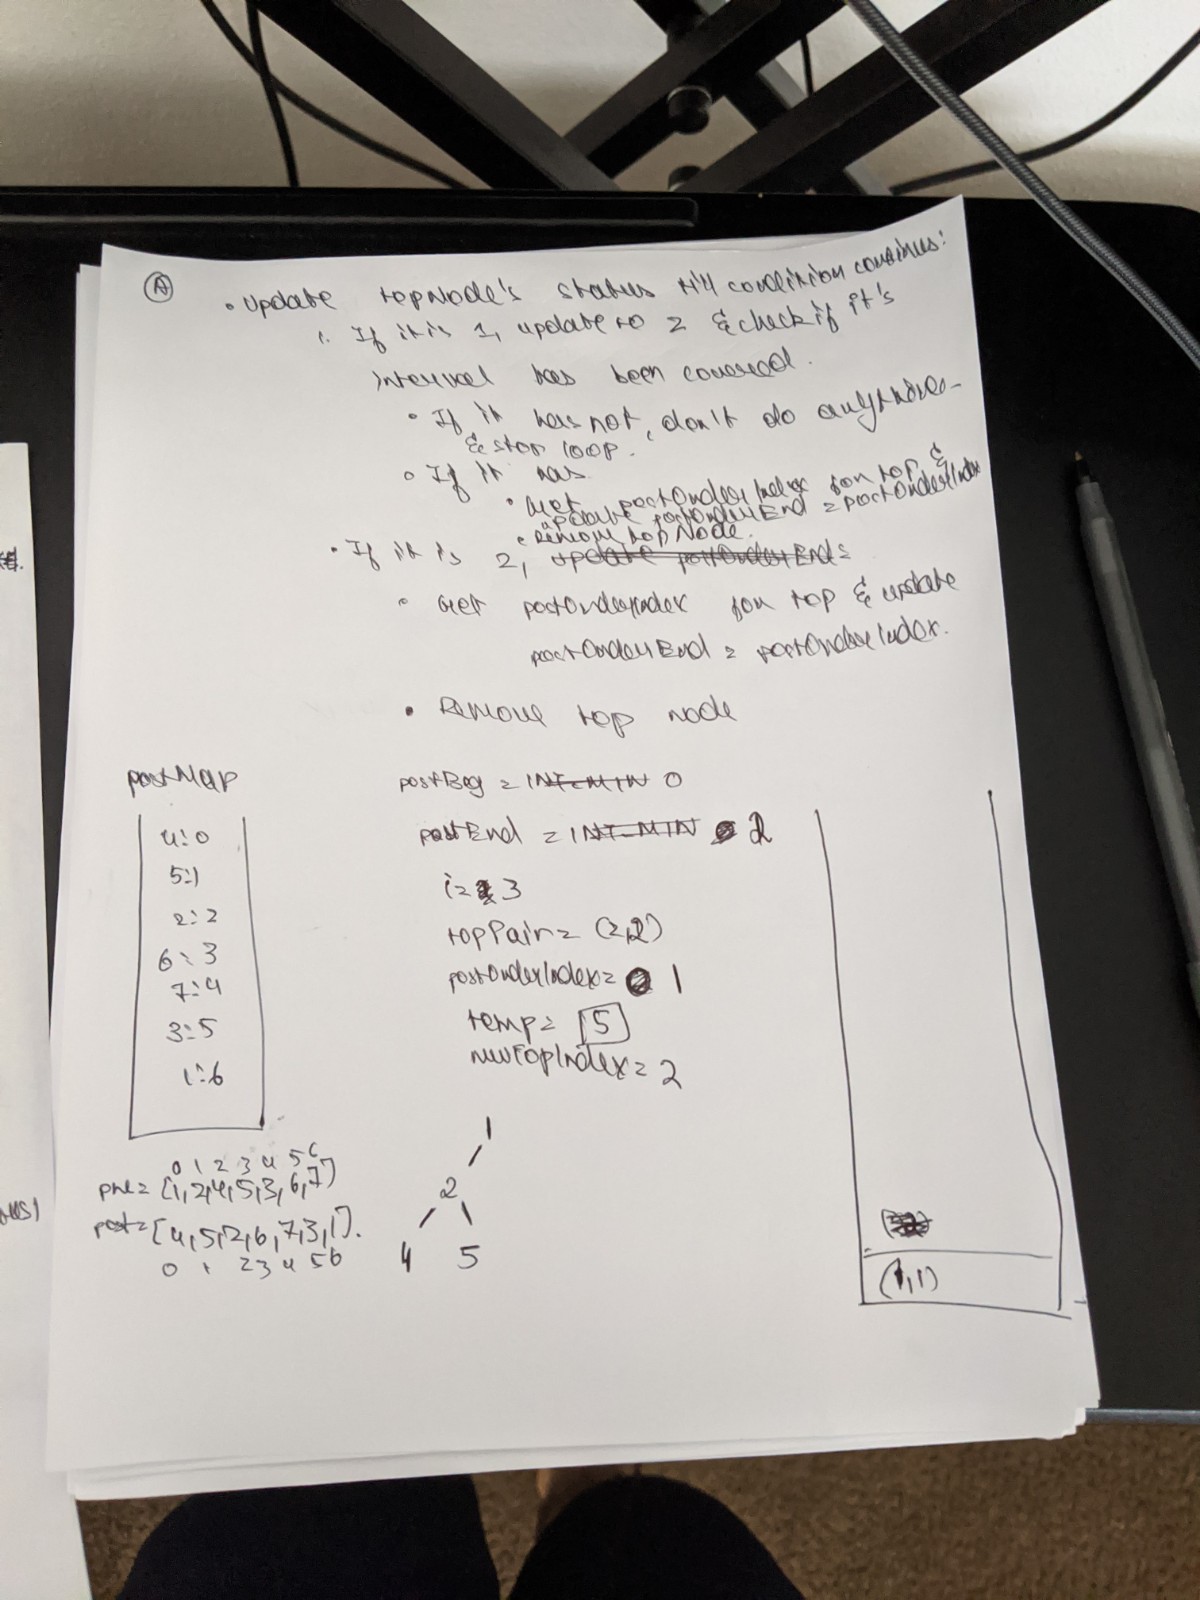 A
• Update topNode's status till condition continues:
1. If it is 1, update to 2 & check if it's
interval has been covered.
• If it has not, don't do anymore
& stop loop.
• If it has
• Get postOrderIndex for top &
update postOrderEnd = postOrderIndex
• Remove top Node.
• If it is 2, update postOrderEnd=
• Get postOrderIndex for top & update
postOrderEnd = postOrderIndex.
• Remove top node
postMap
4:0
5:1
2:2
6:3
7:4
3:5
1:6
postBeg = INT-MIN 0
postEnd = INT-MIN 2
i= 3
topPair= (2,2)
postOrderIndex= 1
temp= 5
newTopIndex= 2
0 1 2 3 4 5 6
pre= [1,2,4,5,3,6,7]
post=[4,5,2,6,7,3,1].
0 1 2 3 4 5 6
1
2
4 5
(1,1)